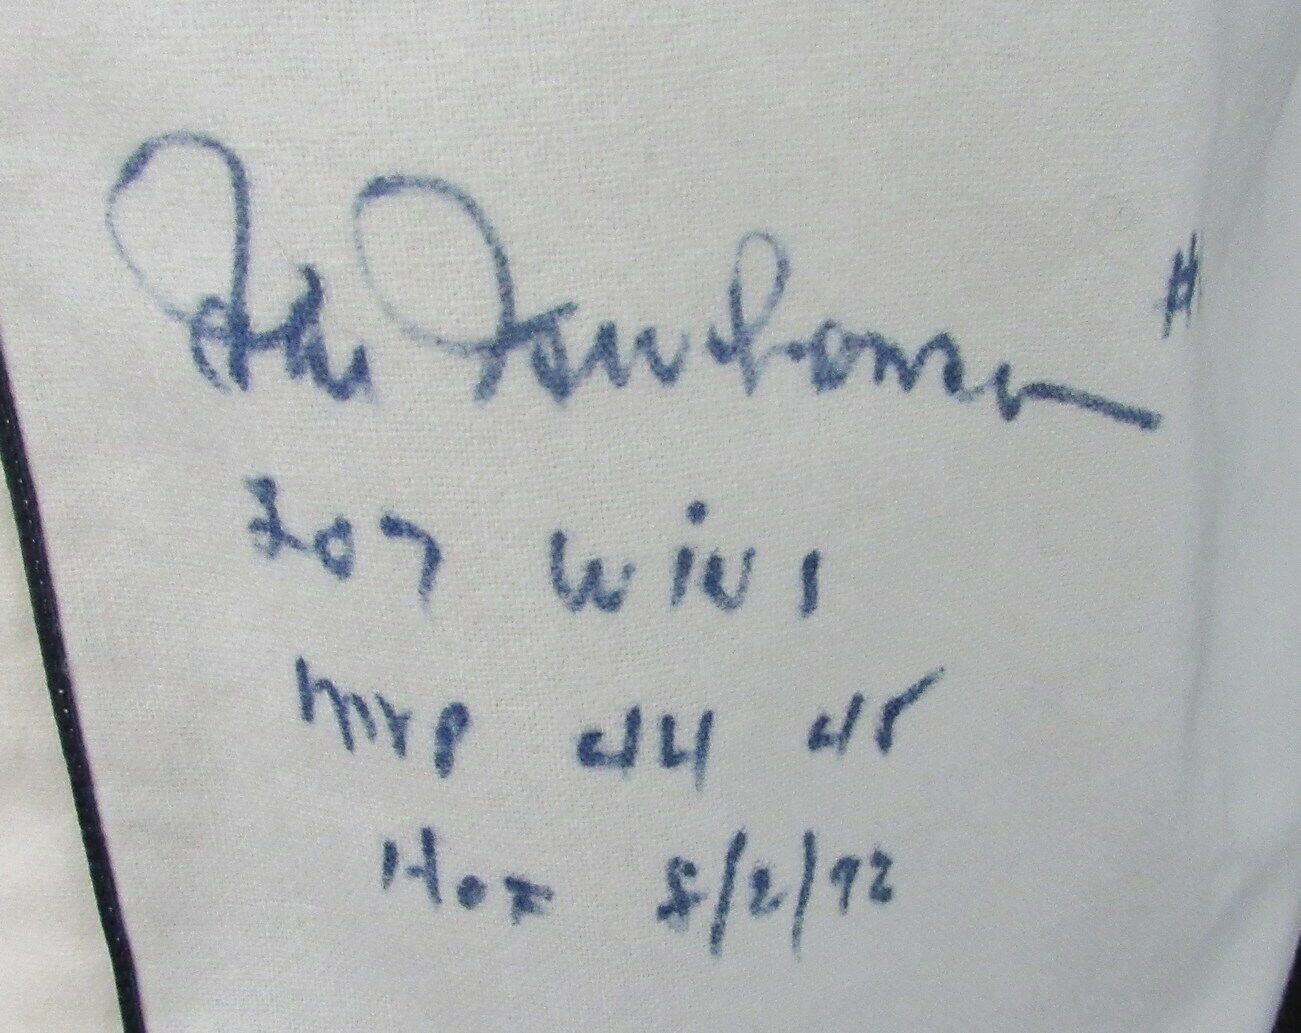 Hal Newhouser #
207 WINS
MVP 44 45
HOF 8/2/92